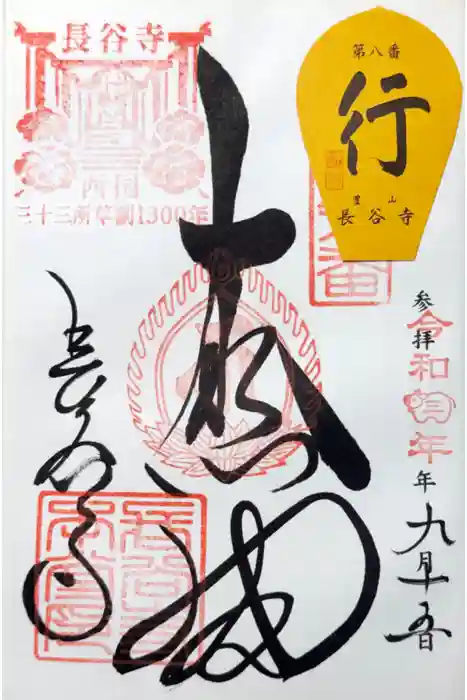 長谷寺
西国
三十三所草創1300年
第八番
行
豊山
長谷寺
番
参拝
令和元年
年九月十五日
大悲閣
長谷寺